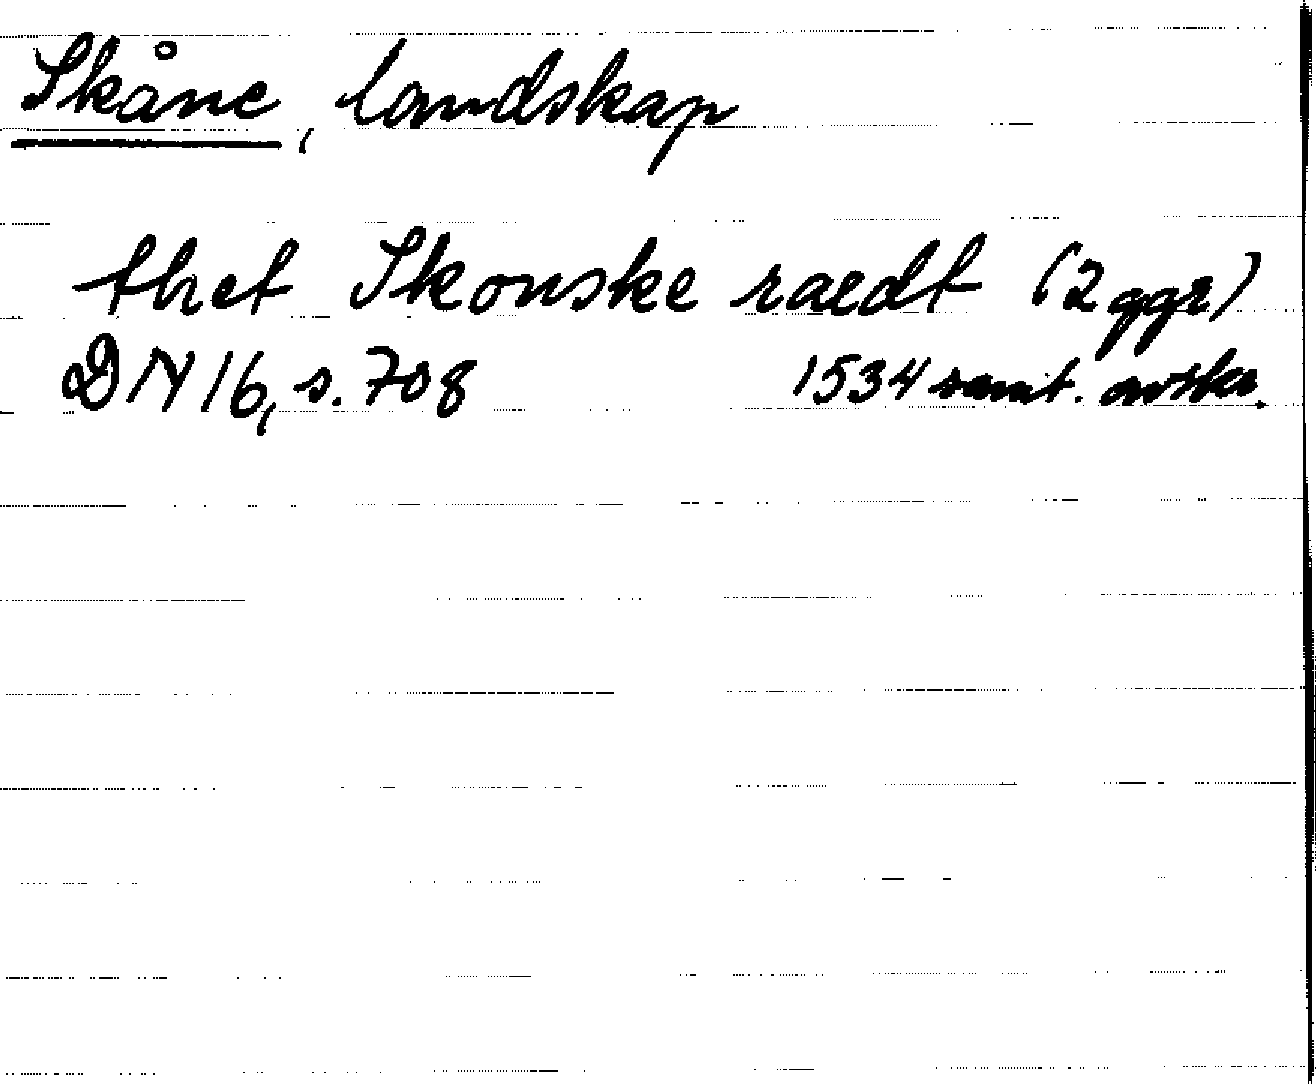 Skåne, landskap
thet Skonske raedt (2 ggr)
DN 16, s. 708 1534 samt. avskr.